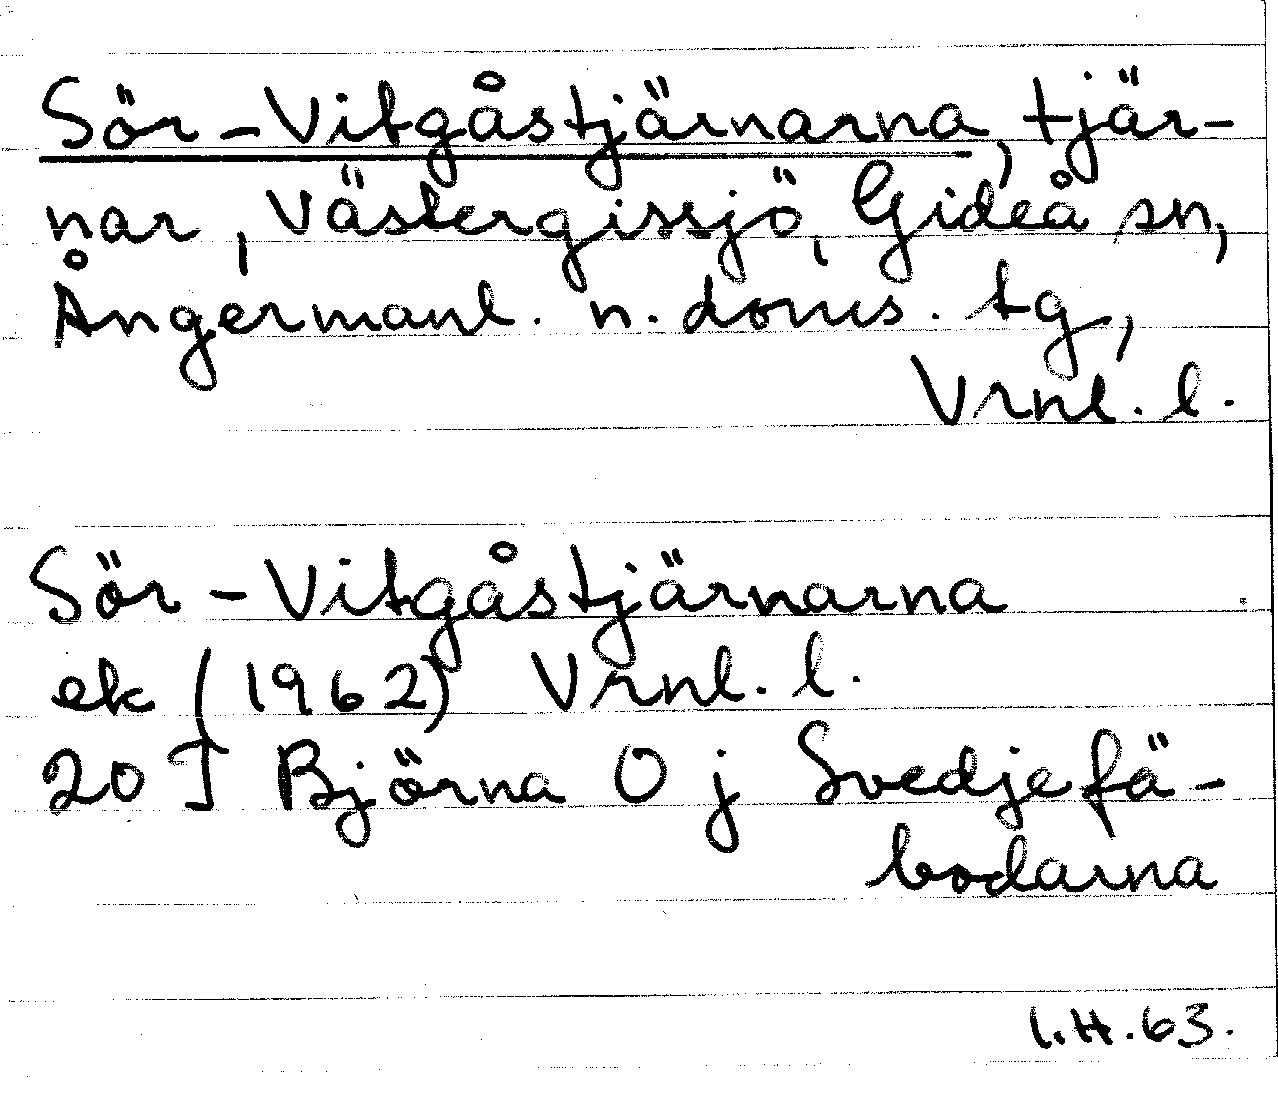 Sör-Vitgåstjärnarna, tjär-
nar, Västergissjö, Gideå sn,
Ångermanl. n. doms. tg,
Vrnl. l.
Sör-Vitgåstjärnarna
ek (1962) Vrnl. l.
20 J Björna O j Svedjefä-
bodarna
I.H.63.